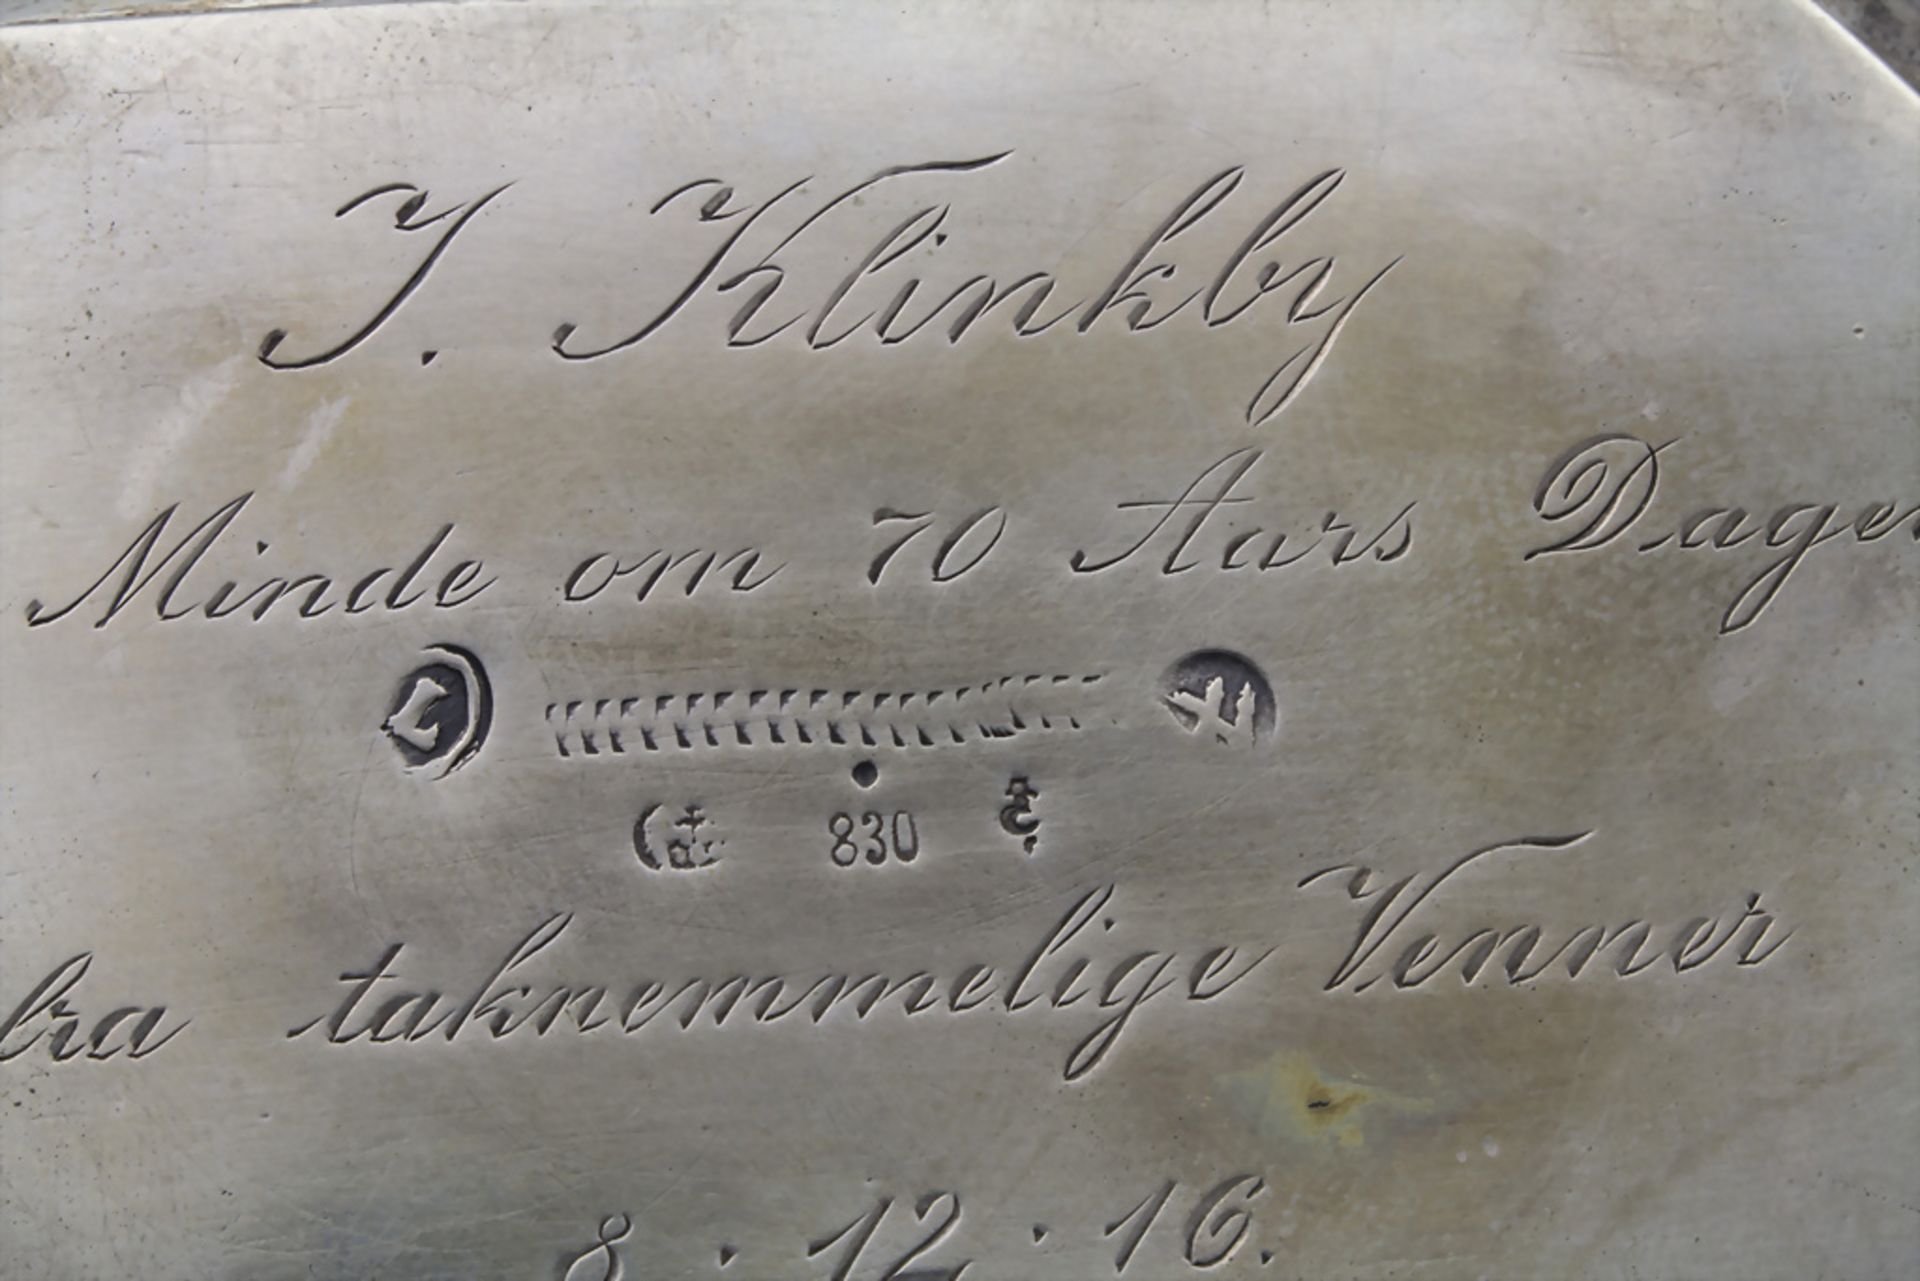 J. Klinkby
Minde om 70 Aars Dagen
830
fra taknemmelige Venner
8 · 12 · 16.